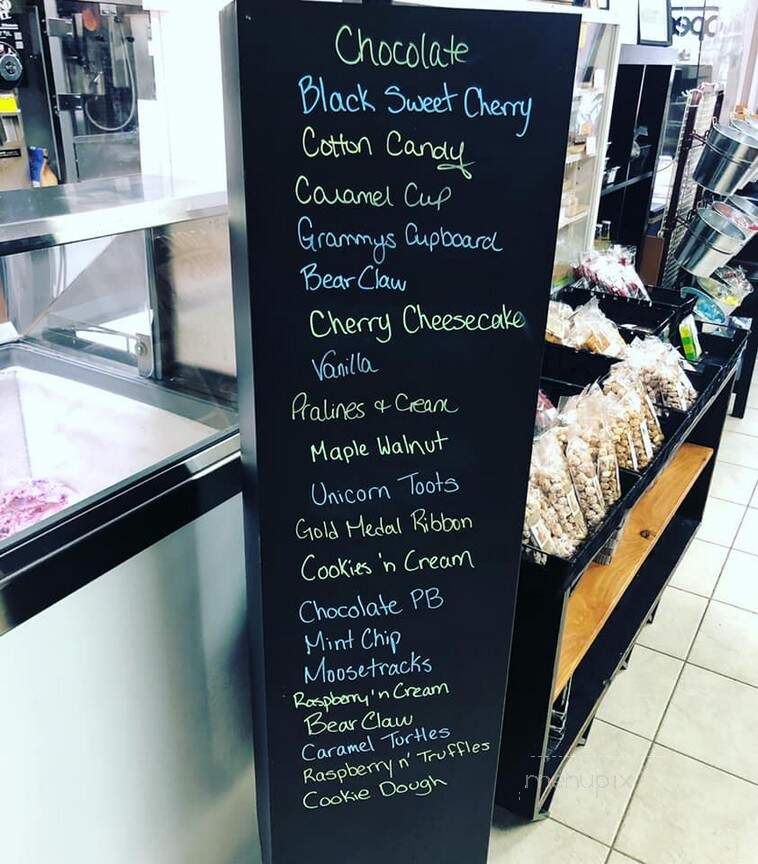 Chocolate
Black Sweet Cherry
Cotton Candy
Caramel Cup
Grammys Cupboard
Bear Claw
Cherry Cheesecake
Vanilla
Pralines & Cream
Maple Walnut
Unicorn Toots
Gold Medal Ribbon
Cookies 'n Cream
Chocolate PB
Mint Chip
Moosetracks
Raspberry 'n Cream
Bear Claw
Caramel Turtles
Raspberry n' Truffles
Cookie Dough
menupix